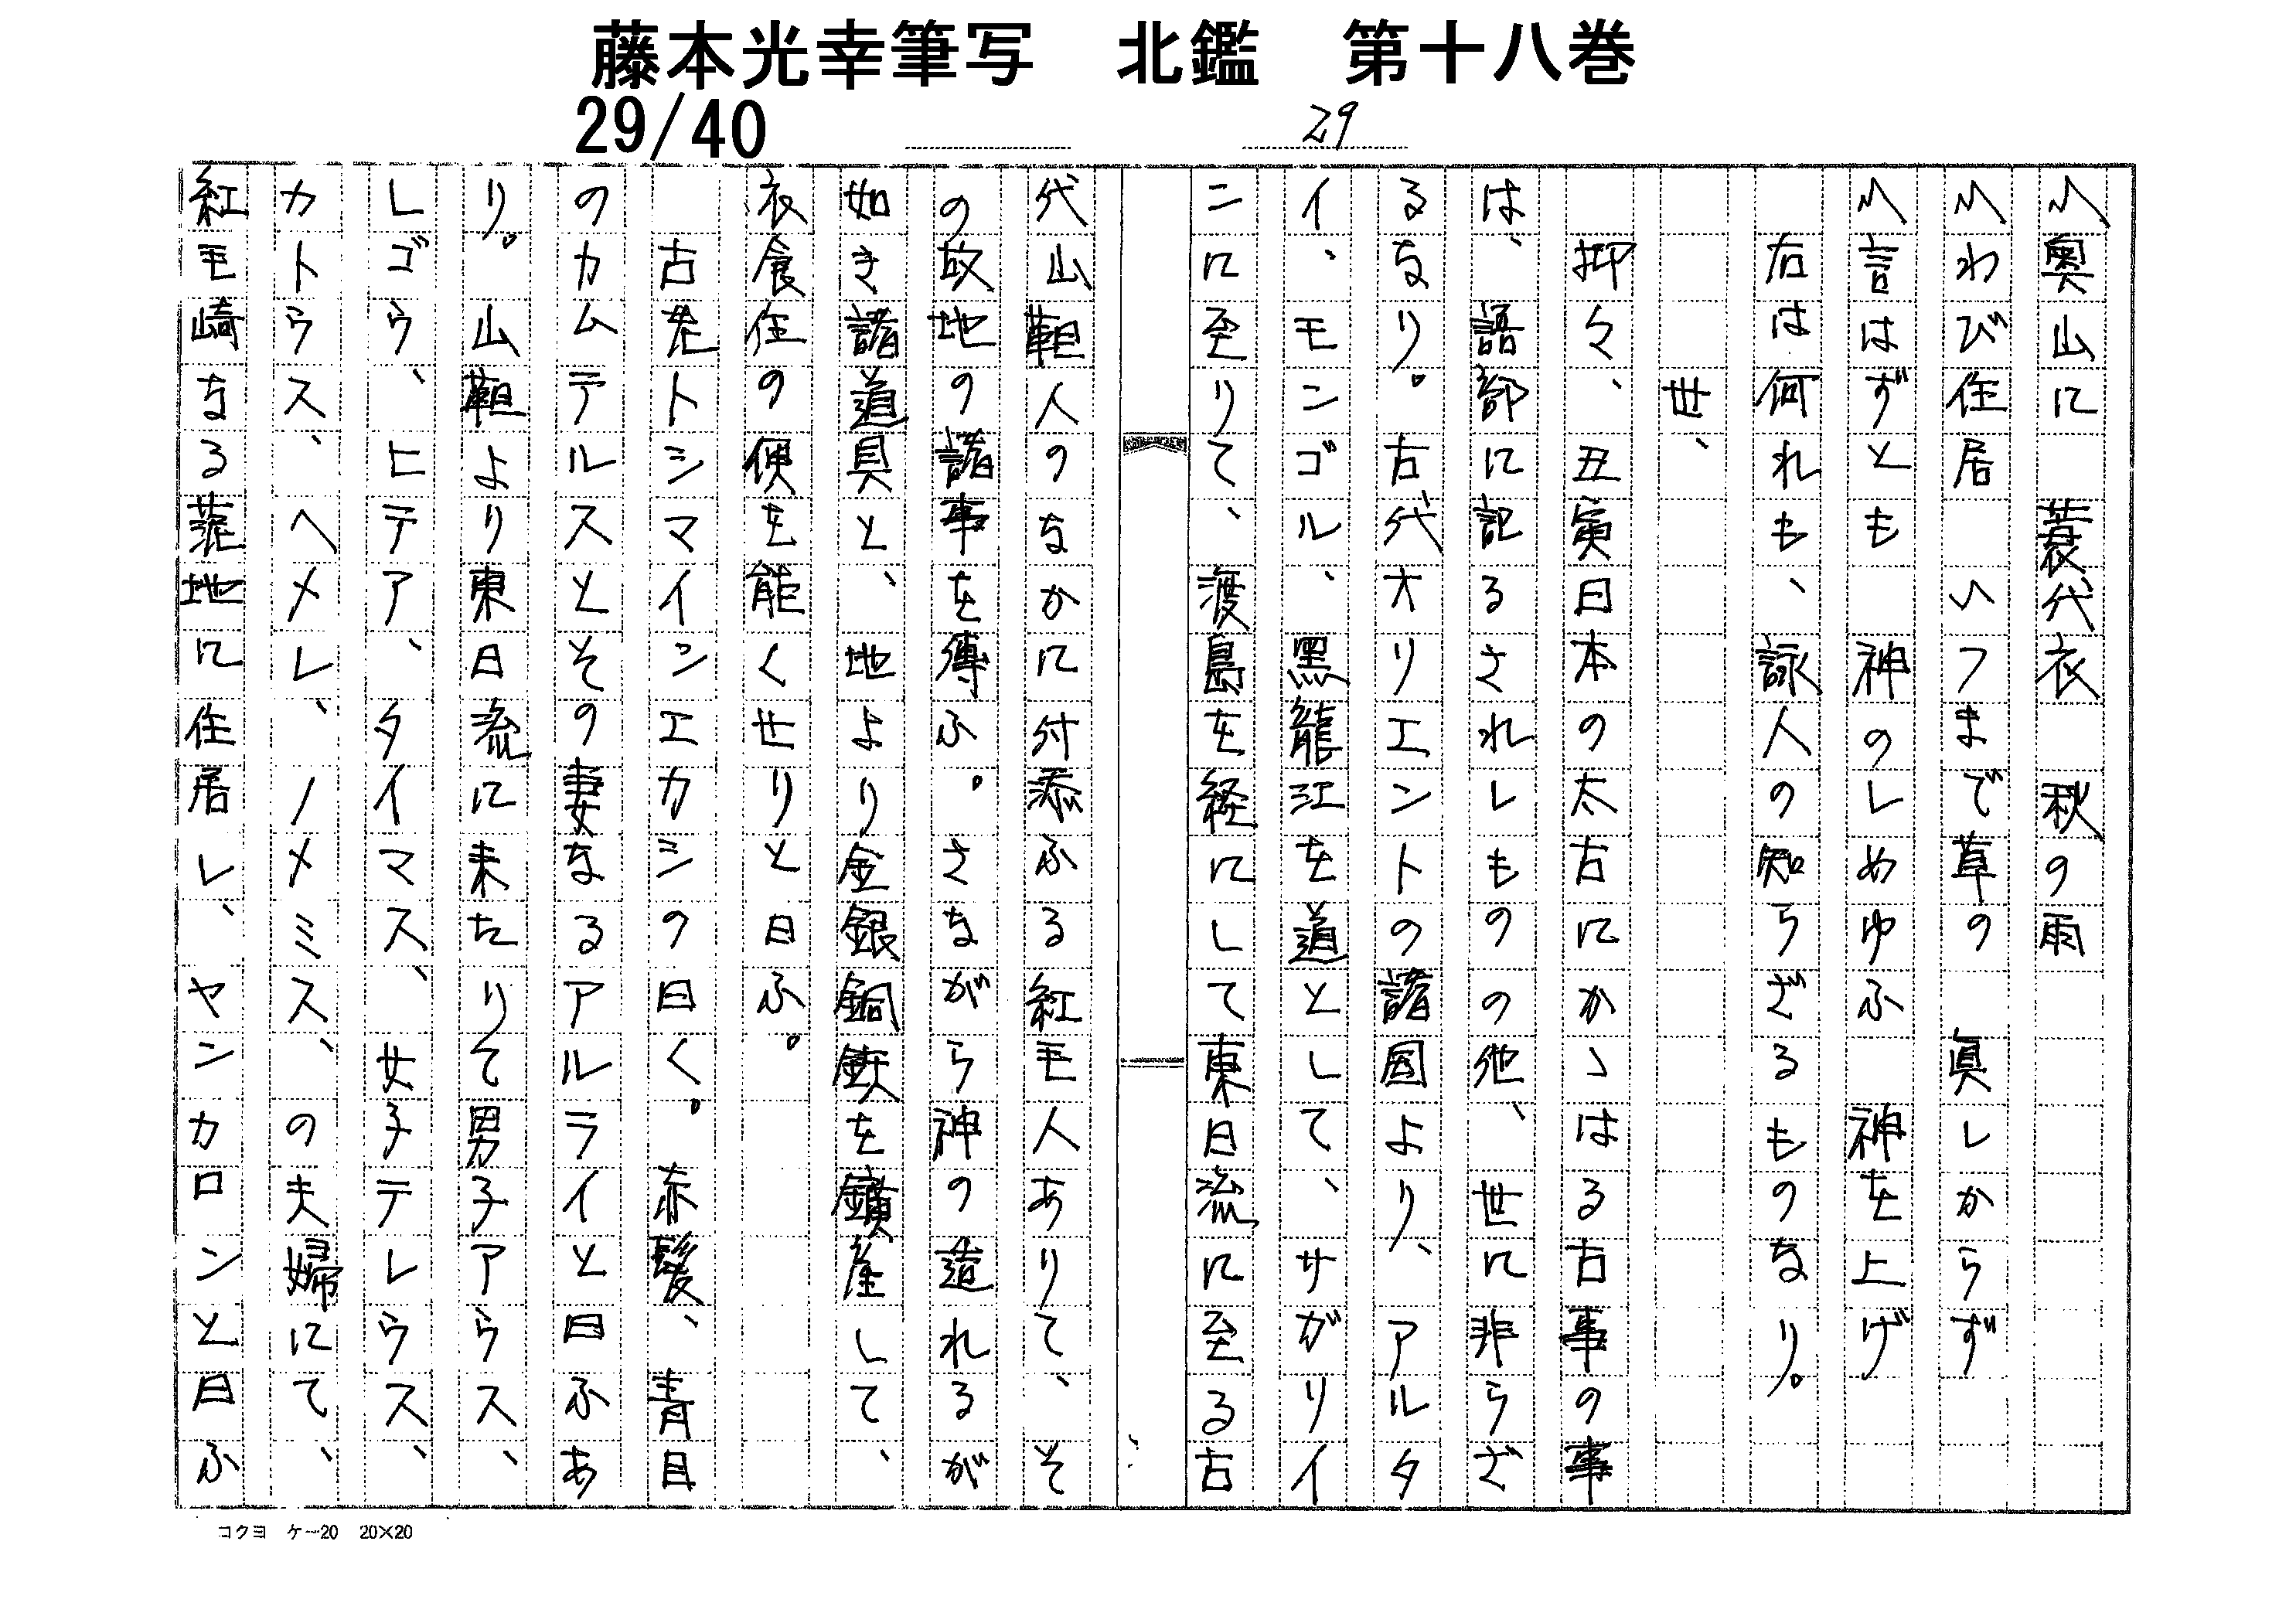 藤本光幸筆写　北鑑　第十八巻
29/40
29
〽奥山に　蓑代衣　秋の雨
〽わび住居　いフまで草の　眞しからず
〽言はずとも　神のしめゆふ　神を上げ
右は何れも、詠人の知らざるものなり。
世、
抑々、丑寅日本の太古にかゝはる古事の事
は、語部に記るされしものの他、世に非らざ
るなり。古代オリエントの諸国より、アルタ
イ、モンゴル、黒龍江を道として、サガリイ
ニに至りて、渡島を経にして東日流に至る古
代山靼人のなかに付添ふる紅毛人ありて、そ
の故地の諸事を傳ふ。さながら神の造れるが
如き諸道具と、地より金銀銅鉄を鑛産して、
衣食住の便を能くせりと曰ふ。
古老トシマインエカシの曰く。赤髪、青目
のカムテルスとその妻なるアルライと曰ふあ
り。山靼より東日流に来たりて男子アラス、
レゴウ、ヒテア、タイマス、女子テレウス、
カトラス、ヘメレ、ノメミス、の夫婦にて、
紅毛崎なる荒地に住居し、ヤンカロンと曰ふ
コクヨ　ケー20　20×20